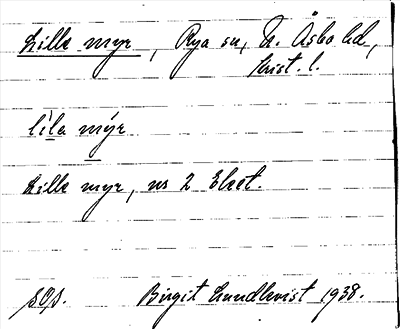 Lille myr, Rya sn, N. Åsbo hd,
Krist. l.
lìla mýr
Lille myr, ns 2 Eket.
SOS. Birgit Lundkvist 1938.